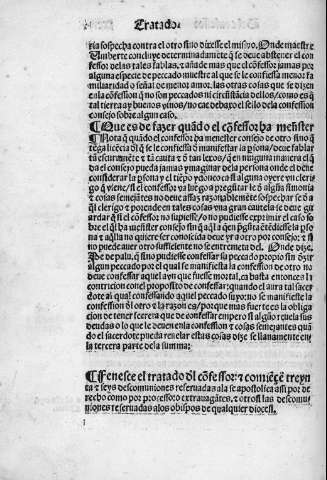 Tratado
ria sospecha contra el otro sino dixesse el mismo. Onde maestre
Umberte concluye determinadamēte q̄ se deue abstener el con
fessor de las tales fablas, z añade mas que el cōfessor jamas por
alguna especie de peccado muestre al que se le confiessa menor fa
miliaridad o señal de menor amor. las otras cosas que se dizen
en la cōfession q̄ no son peccados ni circūstācia dellos/como es q̄
tal tierra ay buenos vinos/no cae debaxo el sello dela confession
consejo sobre algun caso.
¶ Que es de fazer quādo el cōfessor ha menester
Nota q̄ quādo el confessor ha menester consejo de otro sino q̄
tēga licēcia dl̄ q̄ se le confiessa d̄ manifestar la psona/deue fablar
tā escuramēte z tā cauta z tā lexos/q̄ en ninguna manera el q̄
ha el consejo pueda jamas ymaginar dela persona onde el deue
considerar la psona y el tiēpo
q̄ viene/si el confessor va luego a preguntar le d̄ algūa simonia
z cosas semejantes no beue assaz razonablemēte sospechar se d̄ a
q̄l clerigo z porende en tales cosas vna gran cautela se deue gu
ardar q̄ si el cōfessor no supiesse/o no pudiesse exprimir el caso so
bre el q̄l ha menester consejo sin
na z aq̄lla no quiere ser conoscida deue yr a otro por consejo: z si
no puede auer otro sufficiente no se entremeta del. Onde dize.
De de palu. q̄ sino pudiesse confessar su peccado proprio sin dezir
algun peccado por el qual se manifiesta la confession de otro no
deue confessar aquel ayn que fuesse mortal, ca basta entonces la
contricion conel proposito de confessar: quando el aura tal sacer
dote al qual confessando aquel peccado suyo: no se manifieste la
confession dl̄ otro z la razon es/porque mas fuerte es la obliga
cion de tener secreta que de confessar empero si algūo reuela sus
deudas o lo que le deuen enla confession z cosas semejantes quā
do el sacerdote pueda reuelar estas cosas dize se llanamente en
la tercera parte dela summa:
¶ Fenesce el tratado dl̄ cōfessor: z comiēçē treyn
ta z seys descomuniones reseruadas ala se apostolica assi por de
recho como por processo z extrauagātes, z otrosi las descomu
niones reseruadas alos obispos de qualquier diocesi.